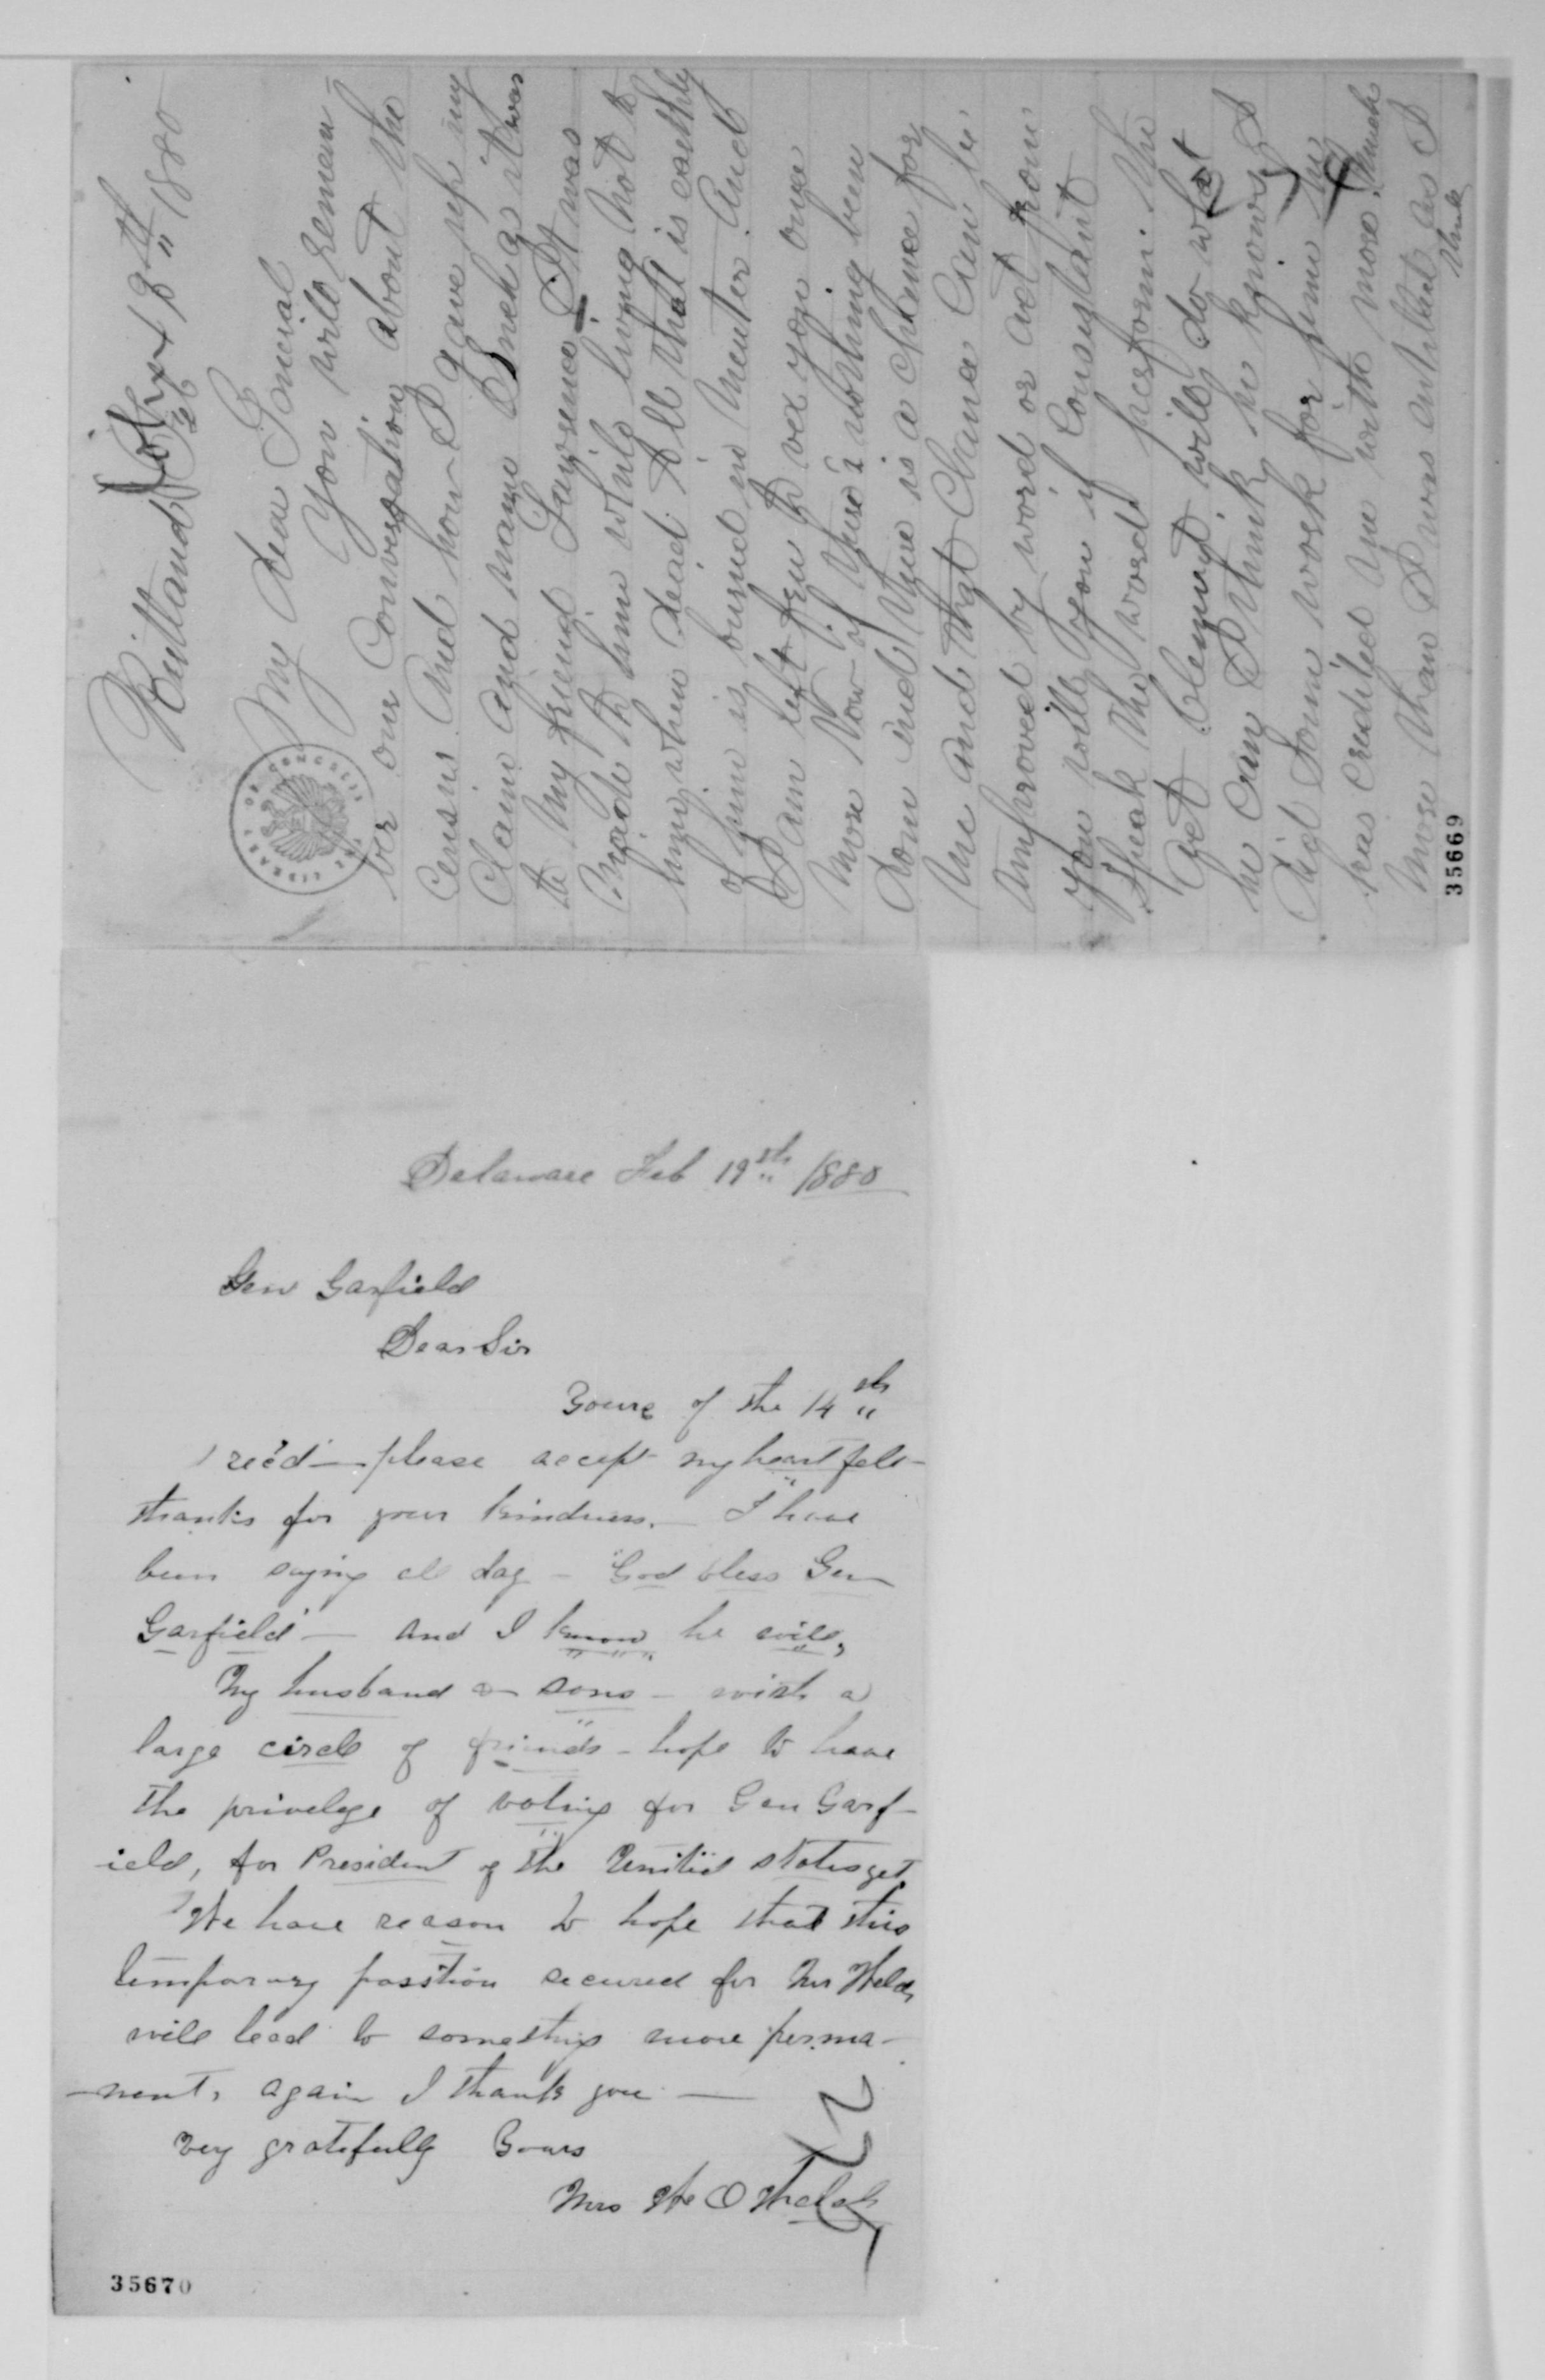 Rutland
Feb 18th 1880
My dear General
You will remem-
ber our Conversation about the
Census And how I gave up my
Claim and name
to my friend Lawrence It was
Made to him while living Not to
him when dead. All that is earthly
of him is buried in Mentor And
I am left free to vex you once
more Now if there's nothing been
done and there is a chance for
me and that Chance Can be
improved by word or act from
you will you if Consistant
Speak the word perform the
act Clement will do what
he can I think he knows I
did Some work for him he
has credited me with more, Much
more than I was entitled as I
think
35669
LIBRARY OF CONGRESS
Delaware Feb 19th 1880
Gen Garfield
Dear Sir
Yours of the 14th
rec'd — please accept my heart felt
thanks for your kindness. — I have
been saying all day — "God bless Gen
Garfield" — and I know he will,
My husband & sons — with a
large circle of friends — hope to have
the privelege of voting for Gen Garf-
ield, for President of the United States yet.
We have reason to hope that this
temporary position secured for Mr
will lead to something more perma-
-nent, again I thank you —
Very gratefully Yours
Mrs
35670